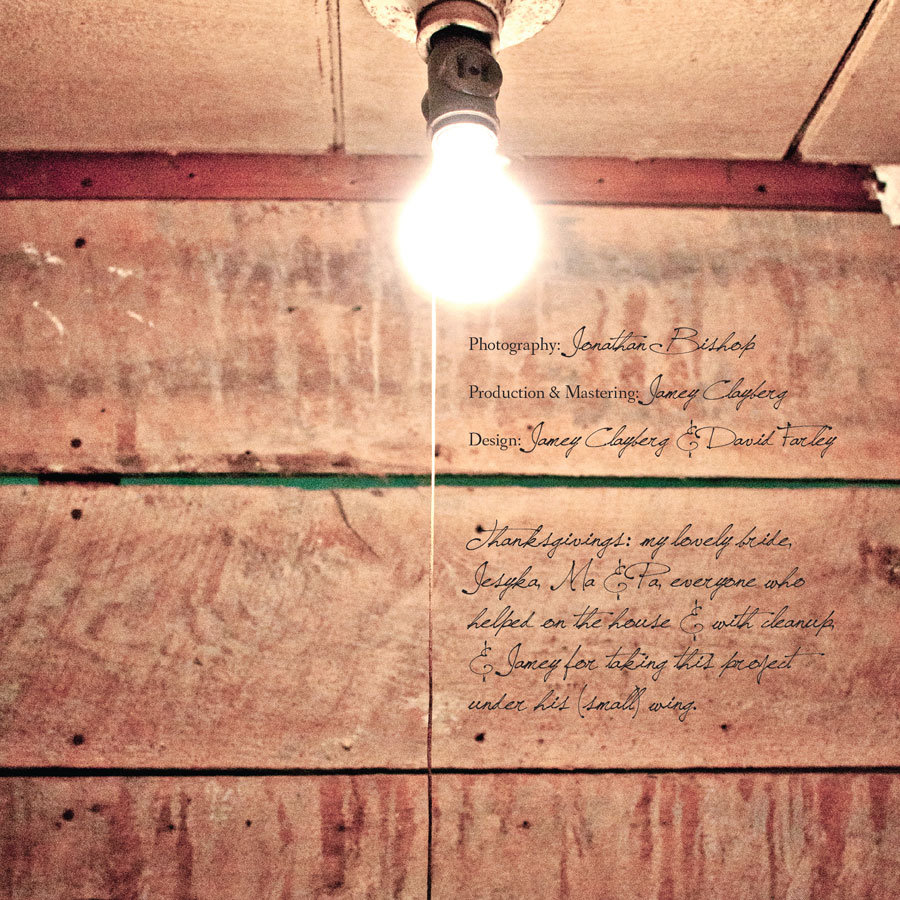 Photography: Jonathan Bishop
Production & Mastering: Jamey Clayberg
Design: Jamey Clayberg & David Farley
Thanksgivings: my lovely bride,
Jesyka, Ma & Pa, everyone who
helped on the house & with cleanup,
& Jamey for taking this project
under his (small) wing.